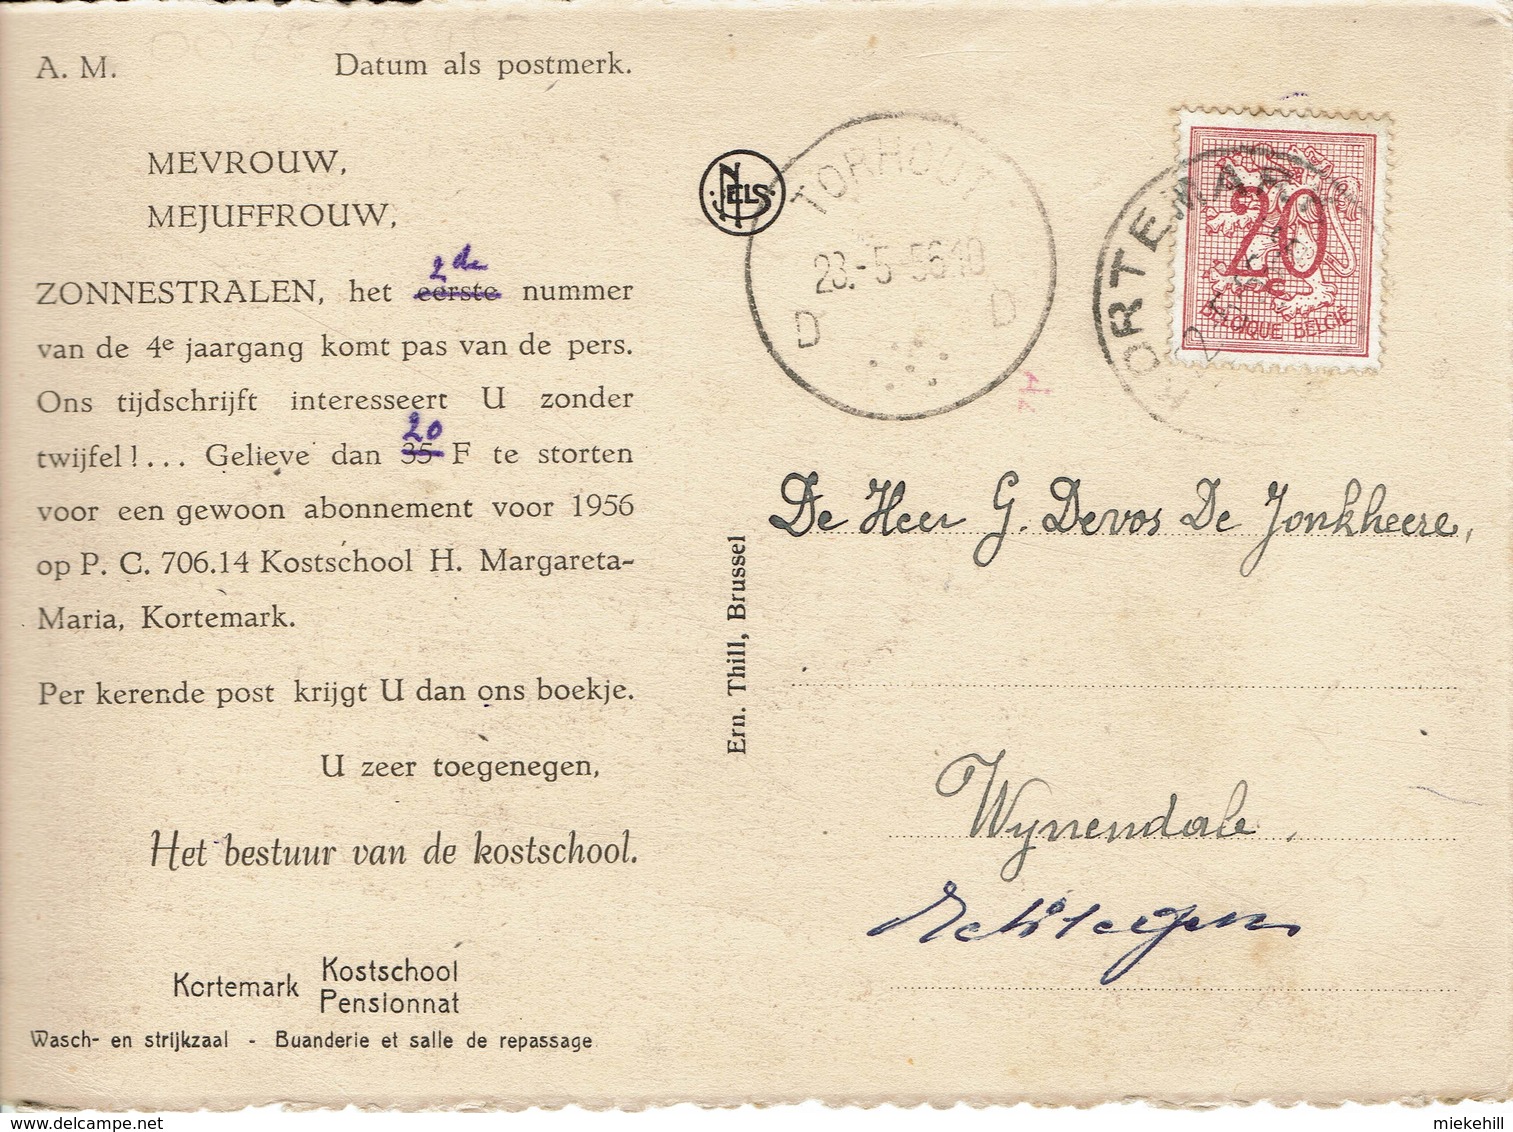 A. M. Datum als postmerk.
MEVROUW,
MEJUFFROUW,
2de
ZONNESTRALEN, het eerste nummer
van de 4e jaargang komt pas van de pers.
Ons tijdschrijft interesseert U zonder
20
twijfel!... Gelieve dan 35 F te storten
voor een gewoon abonnement voor 1956
op P. C. 706.14 Kostschool H. Margareta-
Maria, Kortemark.
Per kerende post krijgt U dan ons boekje.
U zeer toegenegen,
Het bestuur van de kostschool.
Kortemark Kostschool
Pensionnat
Wasch- en strijkzaal - Buanderie et salle de repassage
NELS
Ern. Thill, Brussel
TORHOUT
23.-5-56 10
D D
KORTEMARK
20
BELGIQUE BELGIË
De Heer G. Devos De Jonkheere,
Wynendale.
delcampe.net
miekehill